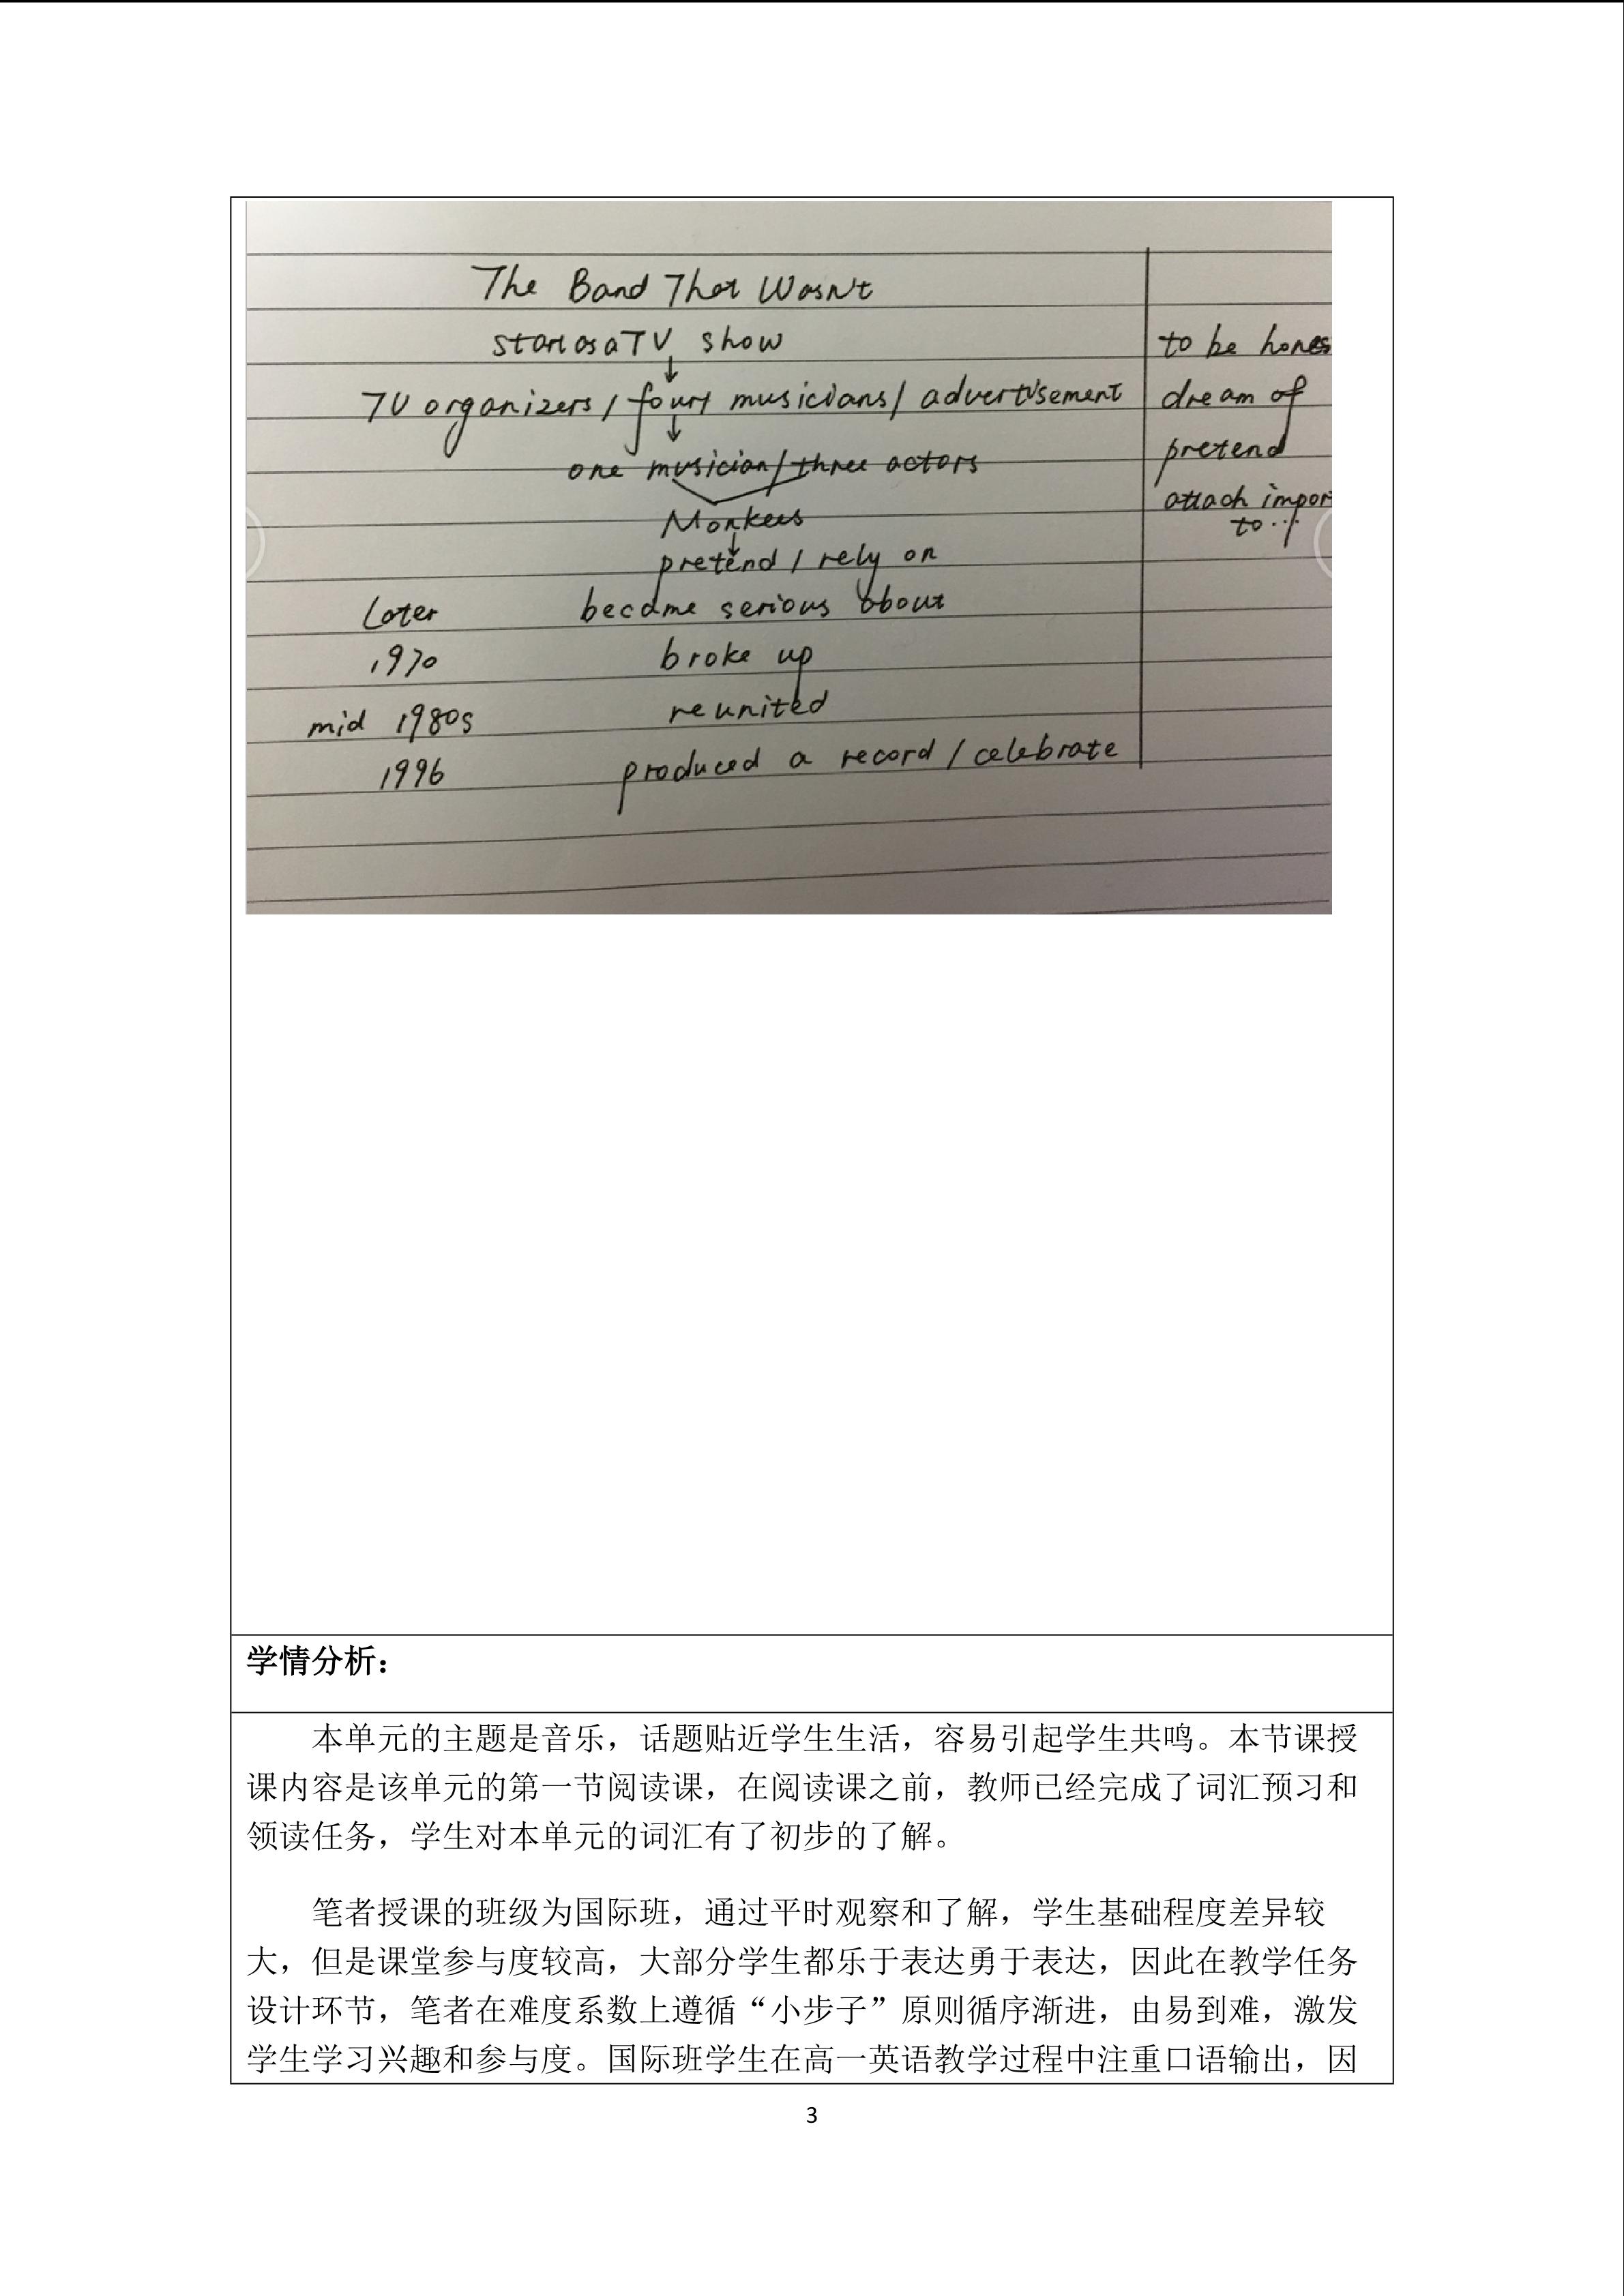 The Band That Wasn't
start as a TV show
TV organizers / four musicians / advertisement
one musician / three actors
Monkees
pretend / rely on
Later became serious about
1970 broke up
mid 1980s reunited
1996 produced a record / celebrate
to be hones
dream of
pretend
attach impor
to...
学情分析：
本单元的主题是音乐，话题贴近学生生活，容易引起学生共鸣。本节课授
课内容是该单元的第一节阅读课，在阅读课之前，教师已经完成了词汇预习和
领读任务，学生对本单元的词汇有了初步的了解。
笔者授课的班级为国际班，通过平时观察和了解，学生基础程度差异较
大，但是课堂参与度较高，大部分学生都乐于表达勇于表达，因此在教学任务
设计环节，笔者在难度系数上遵循“小步子”原则循序渐进，由易到难，激发
学生学习兴趣和参与度。国际班学生在高一英语教学过程中注重口语输出，因
3